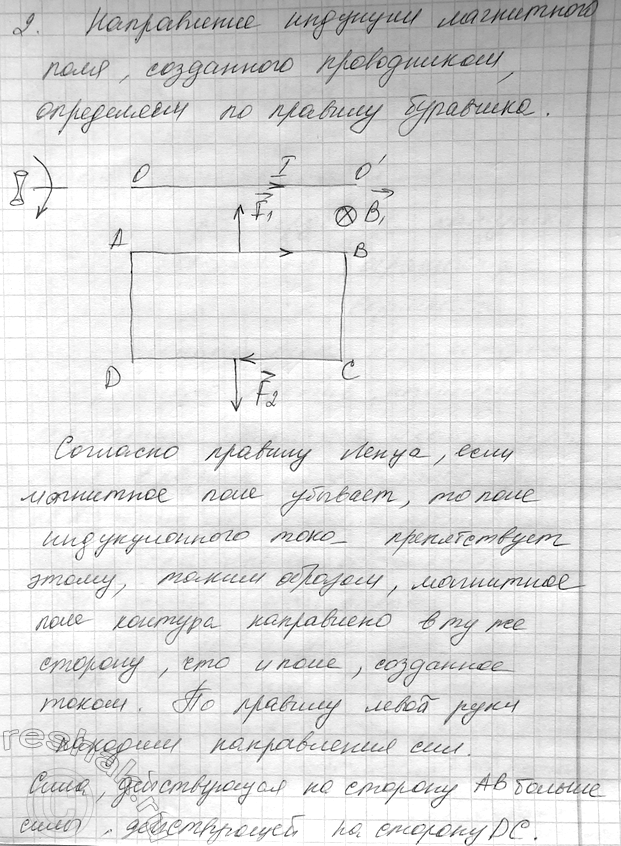 2. Направление индукции магнитного
поля, созданного проводником,
определяем по правилу буравчика.
O I O'
F₁ B₁
A B
D C
F₂
Согласно правилу Ленца, если
магнитное поле убывает, то поле
индукционного тока препятствует
этому, таким образом, магнитное
поле контура направлено в ту же
сторону, что и поле, созданное
током. По правилу левой руки
находим направления сил.
Сила, действующая на сторону AB больше
силы, действующей на сторону DC.